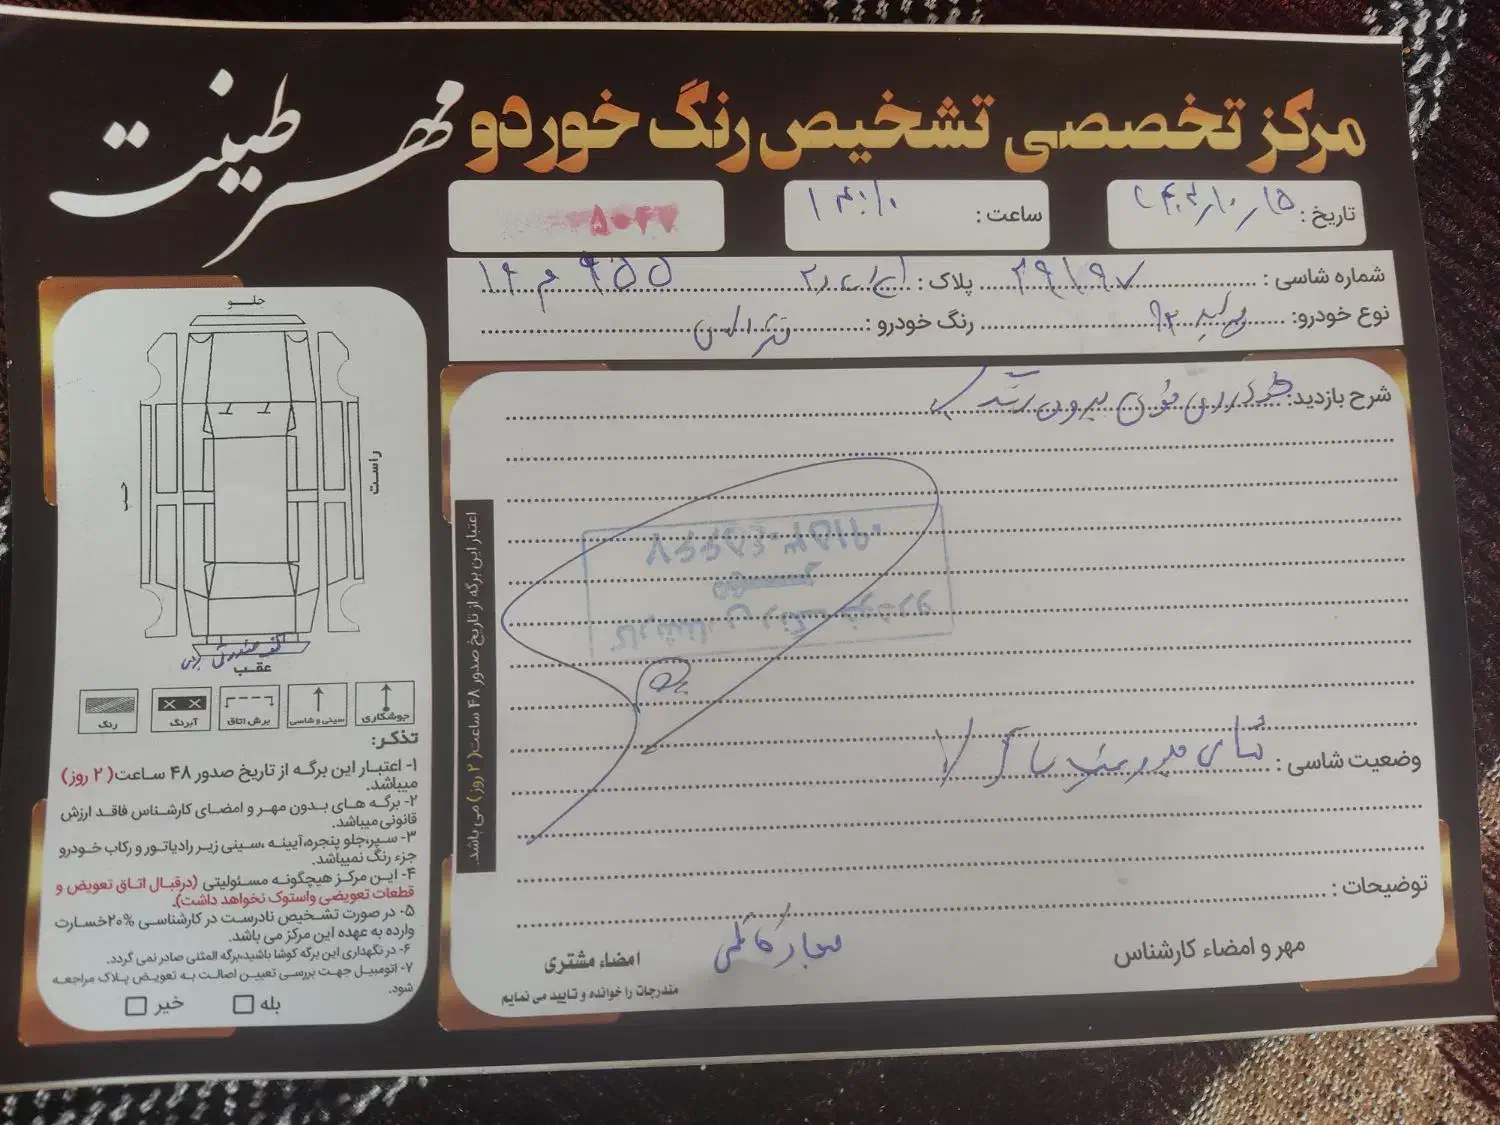 مرکز تخصصی تشخیص رنگ خودرو
مهر طینت
تاریخ :
ساعت :
۵۰۴۷
شماره شاسی : ۴۹۱۹۷ پلاک :
نوع خودرو: پراید رنگ خودرو :
شرح بازدید: بیرون
کارشناسی رنگ خودرو
وضعیت شاسی :
توضیحات :
مهر و امضاء کارشناس
امضاء مشتری
مندرجات را خوانده و تایید می نمایم
اعتبار این برگه از تاریخ صدور ۴۸ ساعت( ۲ روز) می باشد.
جلو
راست
چپ
عقب
جوشکاری
سینی و شاسی
برش اتاق
آبرنگ
رنگ
تذکر:
۱- اعتبار این برگه از تاریخ صدور ۴۸ ساعت( ۲ روز)
میباشد.
۲- برگه های بدون مهر و امضای کارشناس فاقد ارزش
قانونی میباشد.
۳- سپر،جلو پنجره،آیینه ،سینی زیر رادیاتور و رکاب خودرو
جزء رنگ نمیباشد.
۴- این مرکز هیچگونه مسئولیتی (درقبال اتاق تعویض و
قطعات تعویضی واستوک نخواهد داشت).
۵- در صورت تشخیص نادرست در کارشناسی ۲۰%خسارت
وارده به عهده این مرکز می باشد.
۶- در نگهداری این برگه کوشا باشید،برگه المثنی صادر نمی گردد.
۷- اتومبیل جهت بررسی تعیین اصالت به تعویض پلاک مراجعه
شود.
بله
خیر